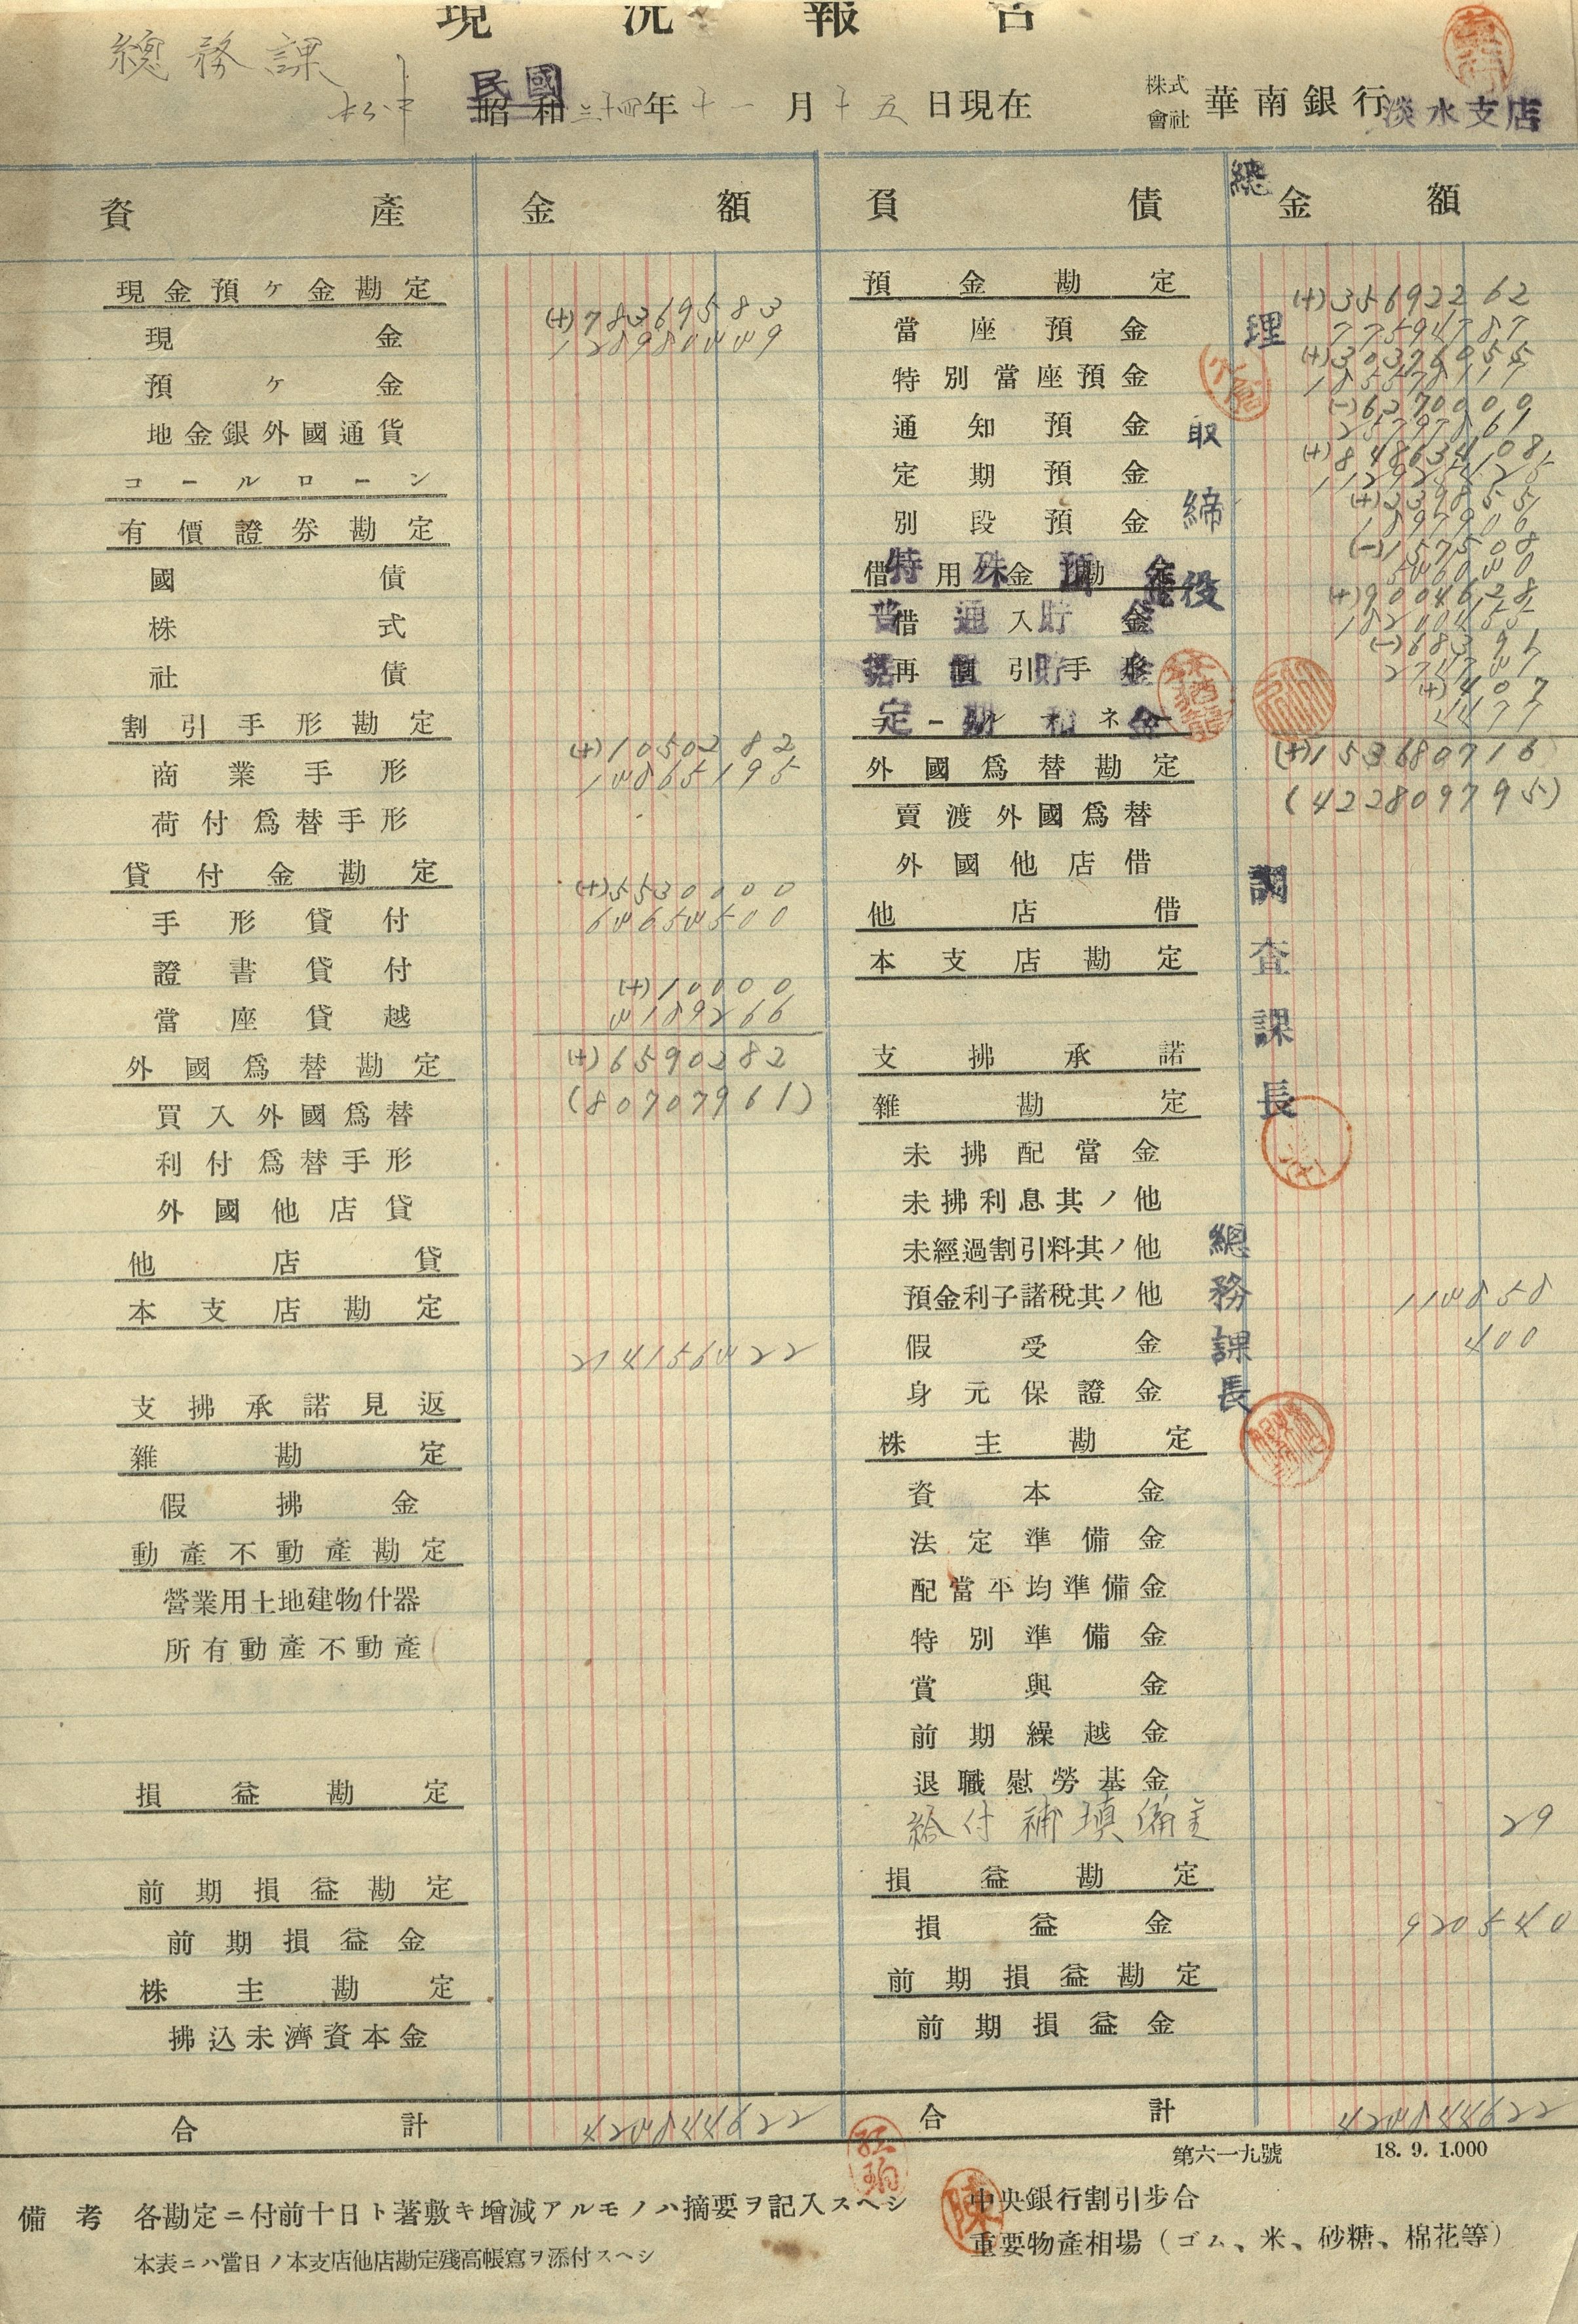 現況報告
總務課
民國
昭和三十四年十一月十五日現在
株式會社 華南銀行 淡水支店
資產 金額
現金預ヶ金勘定
(+)78369583
現金 128980449
預ヶ金
地金銀外國通貨
コールローン
有價證券勘定
國債
株式
社債
割引手形勘定
(+)1050282
商業手形 14865195
荷付爲替手形
貸付金勘定
(+)5530000
手形貸付 64654500
證書貸付
(+)10000
當座貸越 4189266
外國爲替勘定 (+)6590282
買入外國爲替 (80707961)
利付爲替手形
外國他店貸
他店貸
本支店勘定
214156422
支拂承諾見返
雜勘定
假拂金
動產不動產勘定
營業用土地建物什器
所有動產不動產
損益勘定
前期損益勘定
前期損益金
株主勘定
拂込未濟資本金
合計 424844622
負債 金額
總理
取締役
預金勘定 (+)35692262
當座預金 77594787
(+)30376055
特別當座預金 185578117
(-)6270000
通知預金 25797861
(+)84863408
定期預金 112925425
(+)339855
別段預金 1897906
借用金勘定
特殊預金
(-)157508
544040
借入金
普通貯金
(+)9004628
18200455
再割引手形
据置貯金
(-)68391
274747
コールマネー
定期積金
(+)407
4477
外國爲替勘定 (+)153680716
賣渡外國爲替 (422809795)
外國他店借
他店借
本支店勘定
調查課長
支拂承諾
雜勘定
未拂配當金
未拂利息其ノ他
未經過割引料其ノ他
預金利子諸稅其ノ他 114858
假受金 400
身元保證金
總務課長
株主勘定
資本金
法定準備金
配當平均準備金
特別準備金
賞與金
前期繰越金
退職慰勞基金
給付補填備金 29
損益勘定
損益金 920540
前期損益勘定
前期損益金
合計 424844622
第六一九號 18. 9. 1.000
備考 各勘定ニ付前十日ト著敷キ增減アルモノハ摘要ヲ記入スヘシ
本表ニハ當日ノ本支店他店勘定殘高帳寫ヲ添付スヘシ
陳
中央銀行割引步合
重要物產相場(ゴム、米、砂糖、棉花等)